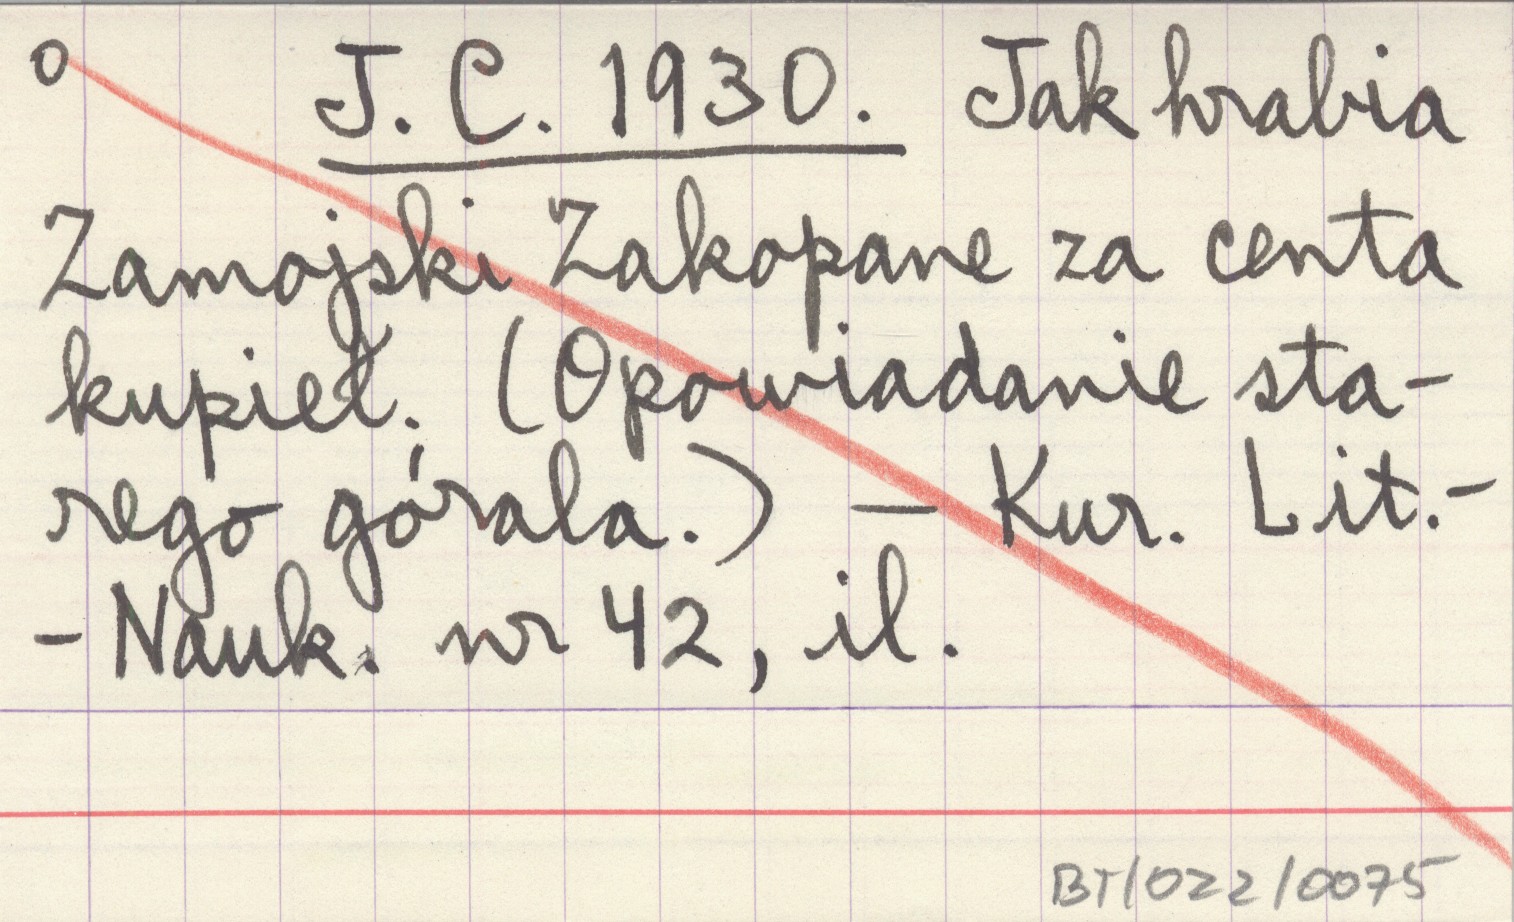 o J. C. 1930. Jak hrabia
Zamojski Zakopane za centa
kupieł. (Opowiadanie sta-
rego górala.) — Kur. Lit.-
- Nauk. nr 42, il.
BT/022/0075